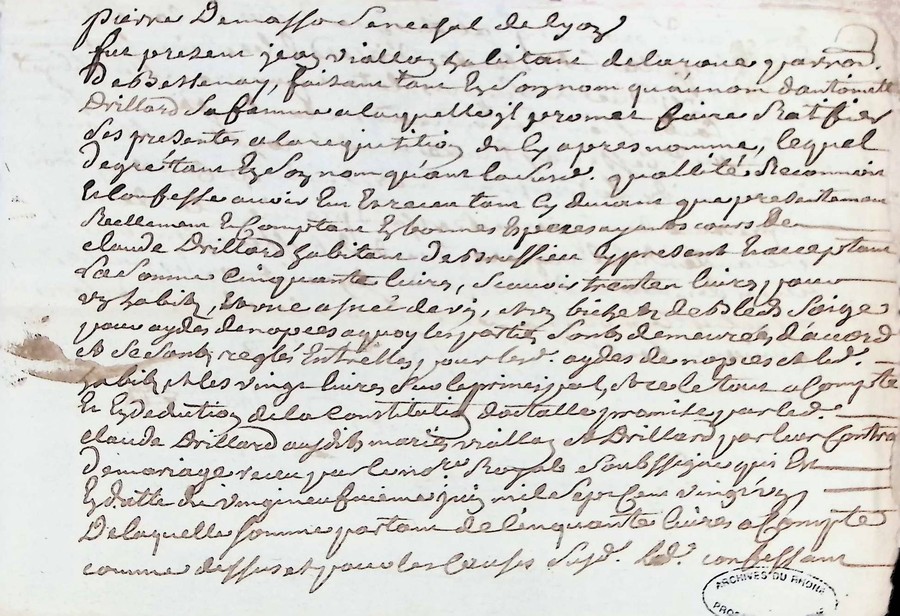 pierre Demasso Senechal de lyon
fut present jean viallon habitant de la roue parroi.
De Bessenay, faisant tant En Son nom qu'au nom d'antoinette
Drillard Sa femme a laquelle jl promet faire Ratiffier
Ses presentes a la requitition du Cy apres nommé, lequel
De gré tant En Son nom qu'en la Susd. quallité Reconnoit
Et Confesse avoir Eu Et receu tant Cy devant que presentement
Reellement Et Comptant En bonnes Especes ayants cours De
claude Drillard habitant De Brussieu Cy present Et acceptant
La Somme Cinquante livres, Scavoir trente livres pour
un habit, Et une asnée de vin, Et un bichet de Bled Soigle
pour aydes de nopces a quoy les parties Sonts demeurés d'accord
Et Se Sonts reglés Entr'elles, pour lesd. aydes de nopces et led.
habit, Et les vingt livres Sur le principal, Et ce le tout a Compte
Et En deduction de la Constitution dotalle promise par led.
Claude Drillard auxdits mariés viallon et Drillard par leur Contrat
De mariage receu par le no.re Royal Soubssigné qui Est
En datte du vingt neufvieme juin mil Sept Cent vingt un
De laquelle Somme partant de Cinquante livres a Compte
comme dessus et pour les Causes Susd. Led. confessant
ARCHIVES DU RHONE